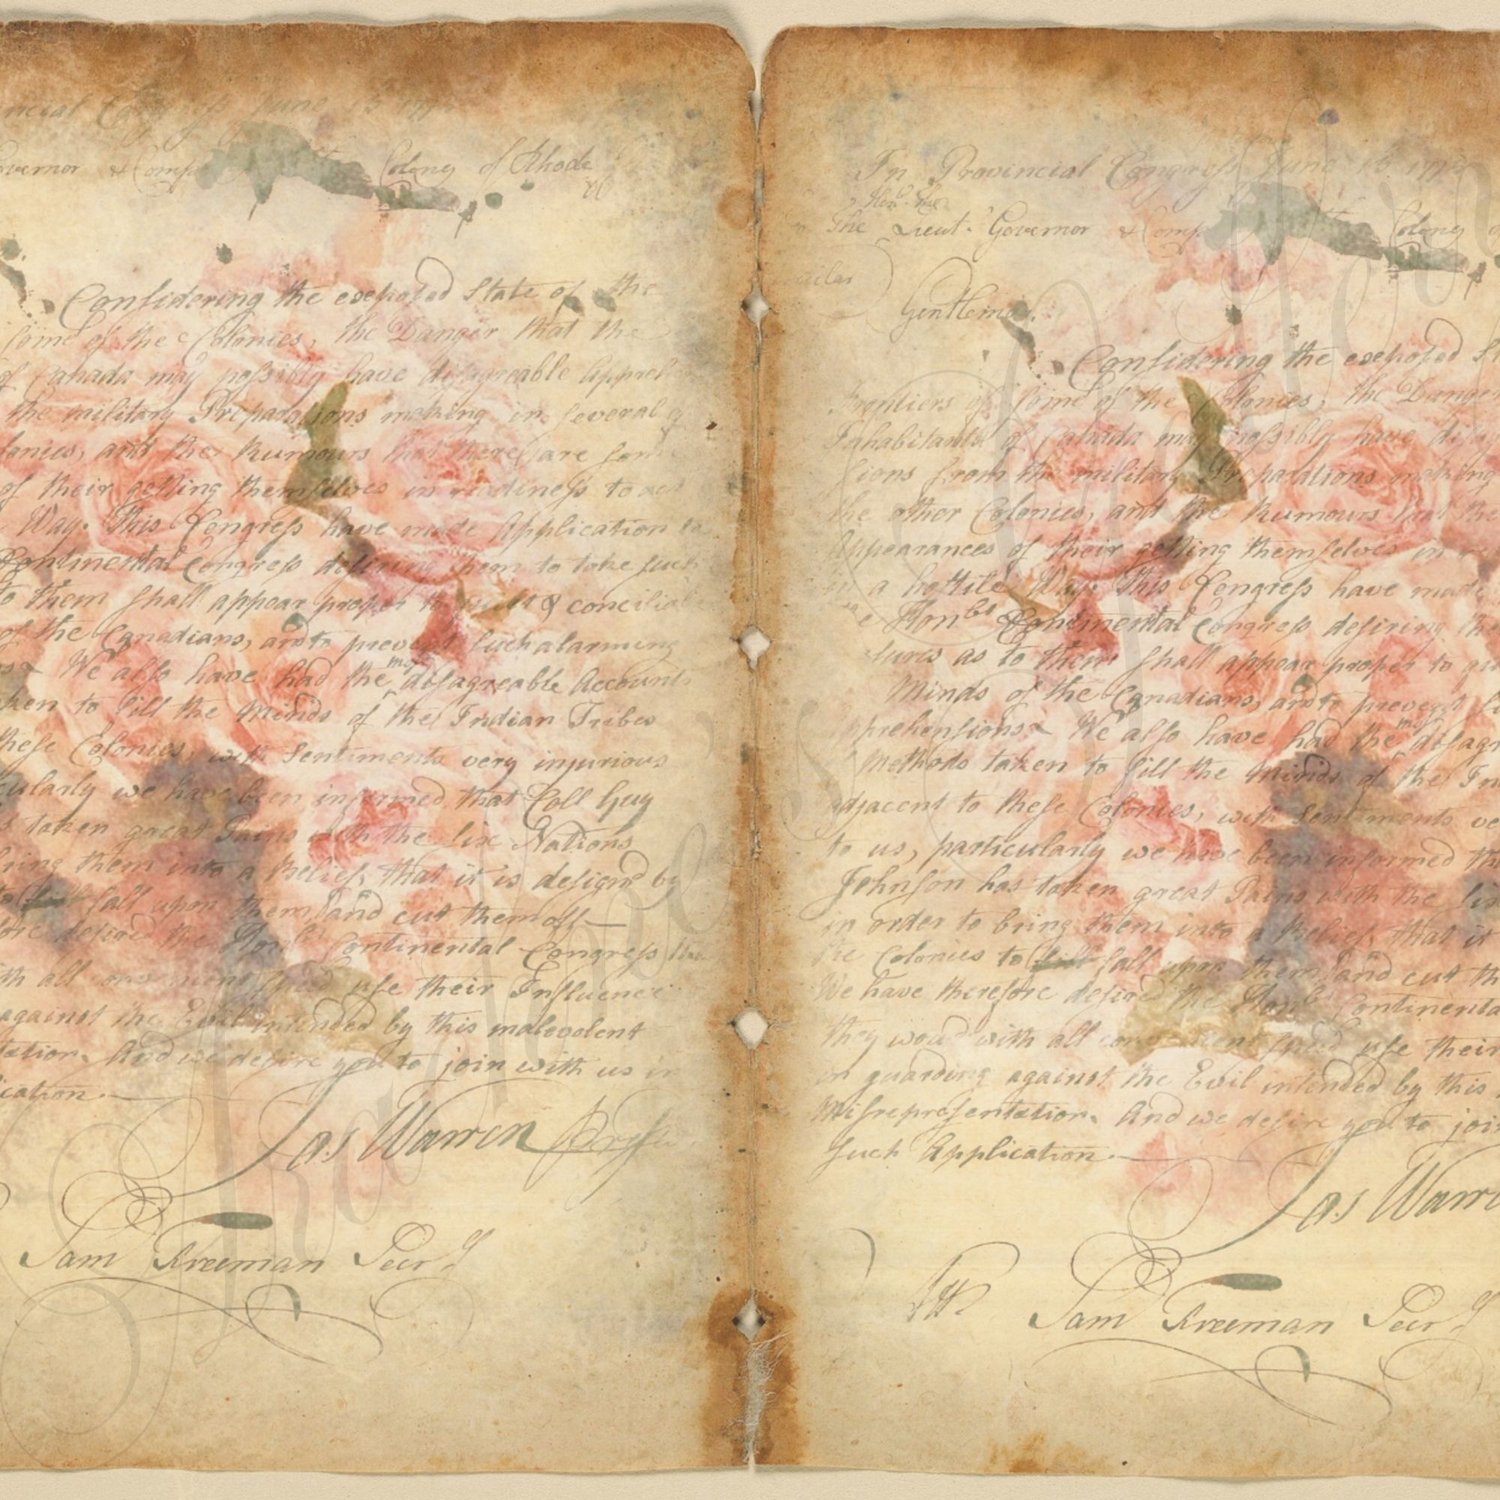 ncial Congress June 13 177
overnor & Comp Colony of Rhode
Considering the exposed State of the
some of the Colonies, the Danger that the
of Canada may possibly have disagreable Appreh
the military Preparations making in several o
lonies, and the Rumours that there are som
of their getting themselves in readiness to act
Way. This Congress have made Application to
Continental Congress desiring them to take such
to them shall appear proper to quiet & concilia
of the Canadians, and to prevent such alarming
We also have had the most disagreable Accounts
ken to fill the Minds of the Indian Tribes
these Colonies, with Sentiments very injurious
cularly we have been informed that Coll Guy
s taken great Pains with the Six Nations
bring them into a Belief, that it is design'd by
to fall upon them, and cut them off
ore desired the Honbl Continental Congress tha
th all convenient speed use their Influence
against the Evil intended by this malevolent
tation. And we desire you to join with us in
ication.
Jas Warren Presd
Sam Freeman Secry
In Provincial Congress June 13 177
Honble
The Lieut. Governor & Comp Colony o
Gentlemen
Considering the exposed S
Frontiers of some of the Colonies, the Danger
Inhabitants of Canada may possibly have disag
sions from the military Preparations making
the other Colonies, and the Rumours that the
Appearances of their getting themselves in re
in a hostile Way. This Congress have made
e Honbl Continental Congress desiring the
sures as to them shall appear proper to qu
Minds of the Canadians, and to prevent s
prehensions. We also have had the most disagr
Methods taken to fill the Minds of the In
adjacent to these Colonies, with Sentiments ve
to us, particularly we have been informed th
Johnson has taken great Pains with the Six
in order to bring them into a Belief, that it
the Colonies to fall upon them, and cut th
We have therefore desired the Honbl Continenta
they would with all convenient speed use their
in guarding against the Evil intended by this
Misrepresentation. And we desire you to joi
such Application.
Jas Warre
Sam Freeman Secry